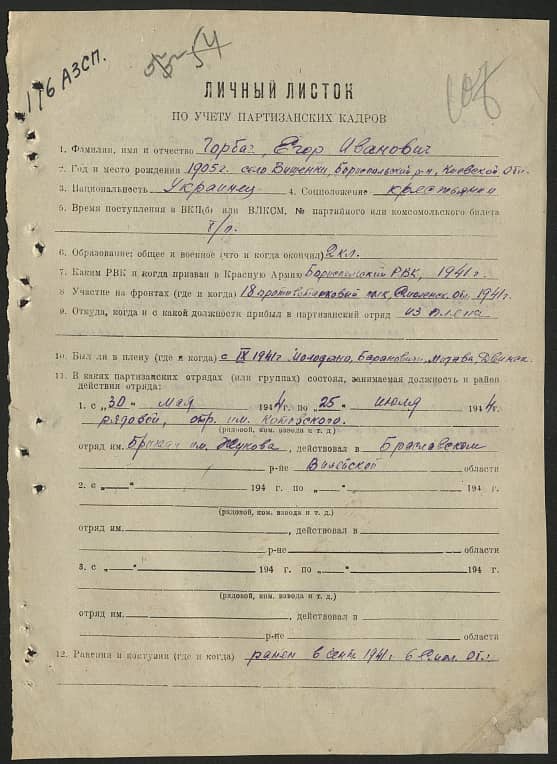 176 АЗСП.
ЛИЧНЫЙ ЛИСТОК
ПО УЧЕТУ ПАРТИЗАНСКИХ КАДРОВ
1. Фамилия, имя и отчество Горбач, Егор Иванович
2. Год и место рождения 1905 г. село Вишенки, Бориспольский р-н, Киевской обл.
3. Национальность Украинец 4. Соцположение крестьянин
5. Время поступления в ВКП(б) или ВЛКСМ, № партийного или комсомольского билета
б/п.
6. Образование: общее и военное (что и когда окончил) 2 кл.
7. Каким РВК и когда призван в Красную Армию Бориспольский РВК, 1941 г.
8. Участие на фронтах (где и когда) 18 противотанковый полк, Смоленск. обл. 1941 г.
9. Откуда, когда и с какой должности прибыл в партизанский отряд из плена
10. Был ли в плену (где и когда) с IX 1941 г. Молодечно, Барановичи, Двинск.
11. В каких партизанских отрядах (или группах) состоял, занимаемая должность и район
действия отряда:
1. с „30" мая 1944 г. по „25" июля 1944 г.
рядовой, отр. им. Котовского.
(рядовой, ком. взвода и т. д.)
отряд им. Бригады им. Жукова, действовал в Браславском
р-не Вилейской области
2. с „ " 194 г. по „ " 194 г.
(рядовой, ком. взвода и т. д.)
отряд им. , действовал в
р-не области
3. с „ " 194 г. по „ " 194 г.
(рядовой, ком. взвода и т. д.)
отряд им. , действовал в
р-не области
12. Ранения и контузии (где и когда) ранен в сент. 1941 г. в Смол. обл.